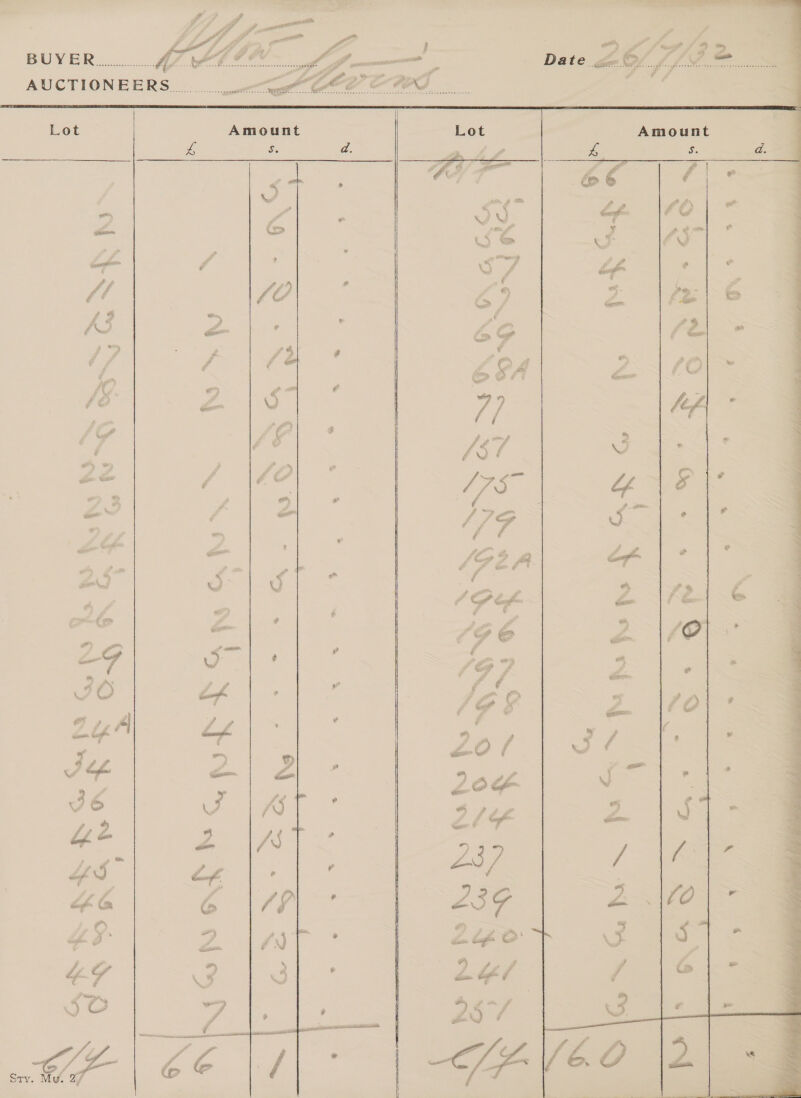 BUYER Plow Date 26/7/32
AUCTIONEERS Stevens
Lot Amount Lot Amount
£ s. d. £ s. d.
1 5 · B/F 66 1 ·
2 6 · 55 4 10 ·
4 1 · · 56 3 15 ·
11 10 · 57 4 · ·
13 2 · · 67 2 12 6
17 1 12 · 69 12 ·
18 2 5 · 68A 2 10 ·
19 18 · 77 14 ·
22 1 10 · 157 3 · ·
23 1 2 · 175 4 8 ·
24 2 · · 179 5 · ·
25 5 5 · 192A 4 · ·
26 2 · · 194 2 12 6
29 5 · · 196 2 10 ·
30 4 · · 197 2 · ·
24A 4 · · 198 2 10 ·
34 2 2 · 201 31 · ·
36 3 15 · 204 5 · ·
42 2 15 · 214 2 5 ·
45 4 · · 237 1 1 ·
46 6 18 · 239 2 10 ·
48 2 15 · 240 3 5 ·
49 3 3 · 241 1 6 ·
50 7 · · 257 3 · ·
C/F 66 1 · C/F 160 2 ·
Sty. Mu. 27